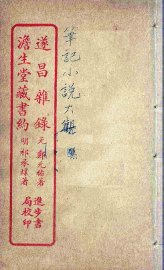 筆記小說大觀
遂昌雜錄 元鄭元佑著
澹生堂藏書約 明祁承㸁著
進步書局校印